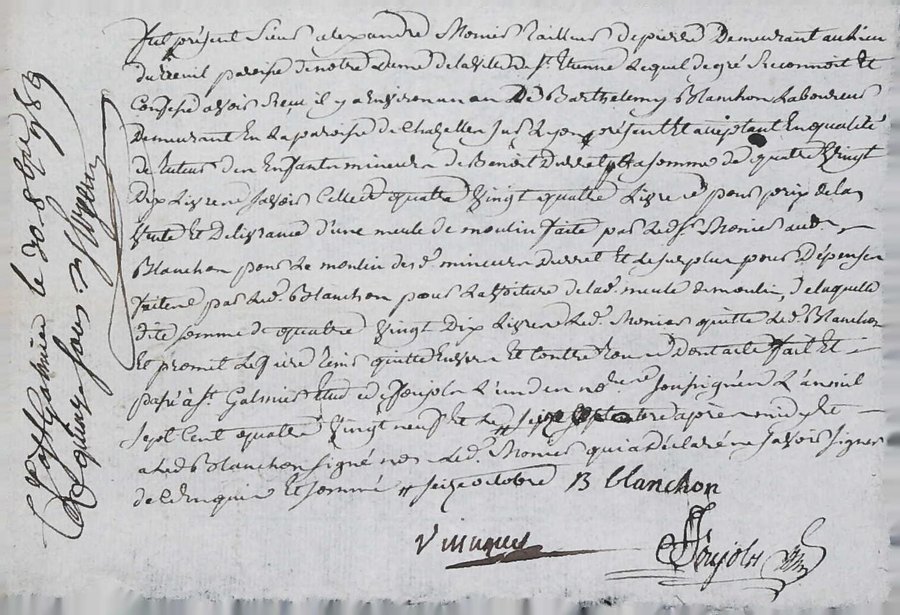 fut présent Sieur alexandre Monier tailleur de pierre Demeurant au lieu
du treuil paroise de notre Dame de la ville de St. Etienne Lequel de gré Reconnoit Et
Confesse avoir Reçu, il y a Environ un an De Barthelemy Blanchon Laboureur
Demeurant En La paroise de Chazelles Sur Lyon présent Et acceptant En qualité
de tuteur des Enfants mineurs de Benoit Durret La somme de quatre Vingt
Dix Livres savoir Celle de quatre Vingt quatre Livres pour prix de la
Vente Et Delivrance d'une meule de moulin faite par Led. Sr Monier aud.
Blanchon pour Le moulin desd. mineurs Durret Et Le surplus pour Dépenses
faites par Led. Blanchon pour La Voiture de lad. meule de moulin, de laquelle
dite somme de quatre Vingt Dix Livres Led. Monier quitte Led. Blanchon
Et promet Le faire tenir quitte Envers Et Contre tous Dont acte fait Et
passé à St. Galmier Etude de Poujols L'un des notaires soussignés L'an mil
sept Cent quatre Vingt neuf Et Le seize après midy Et
a Led. Blanchon signé non Led. Monier qui a Déclaré ne savoir signer
de Ce Enquis Et sommé seize octobre B blanchon
Poujols
St. Galmier le 30. 8bre 1789
Reçu quinze sous